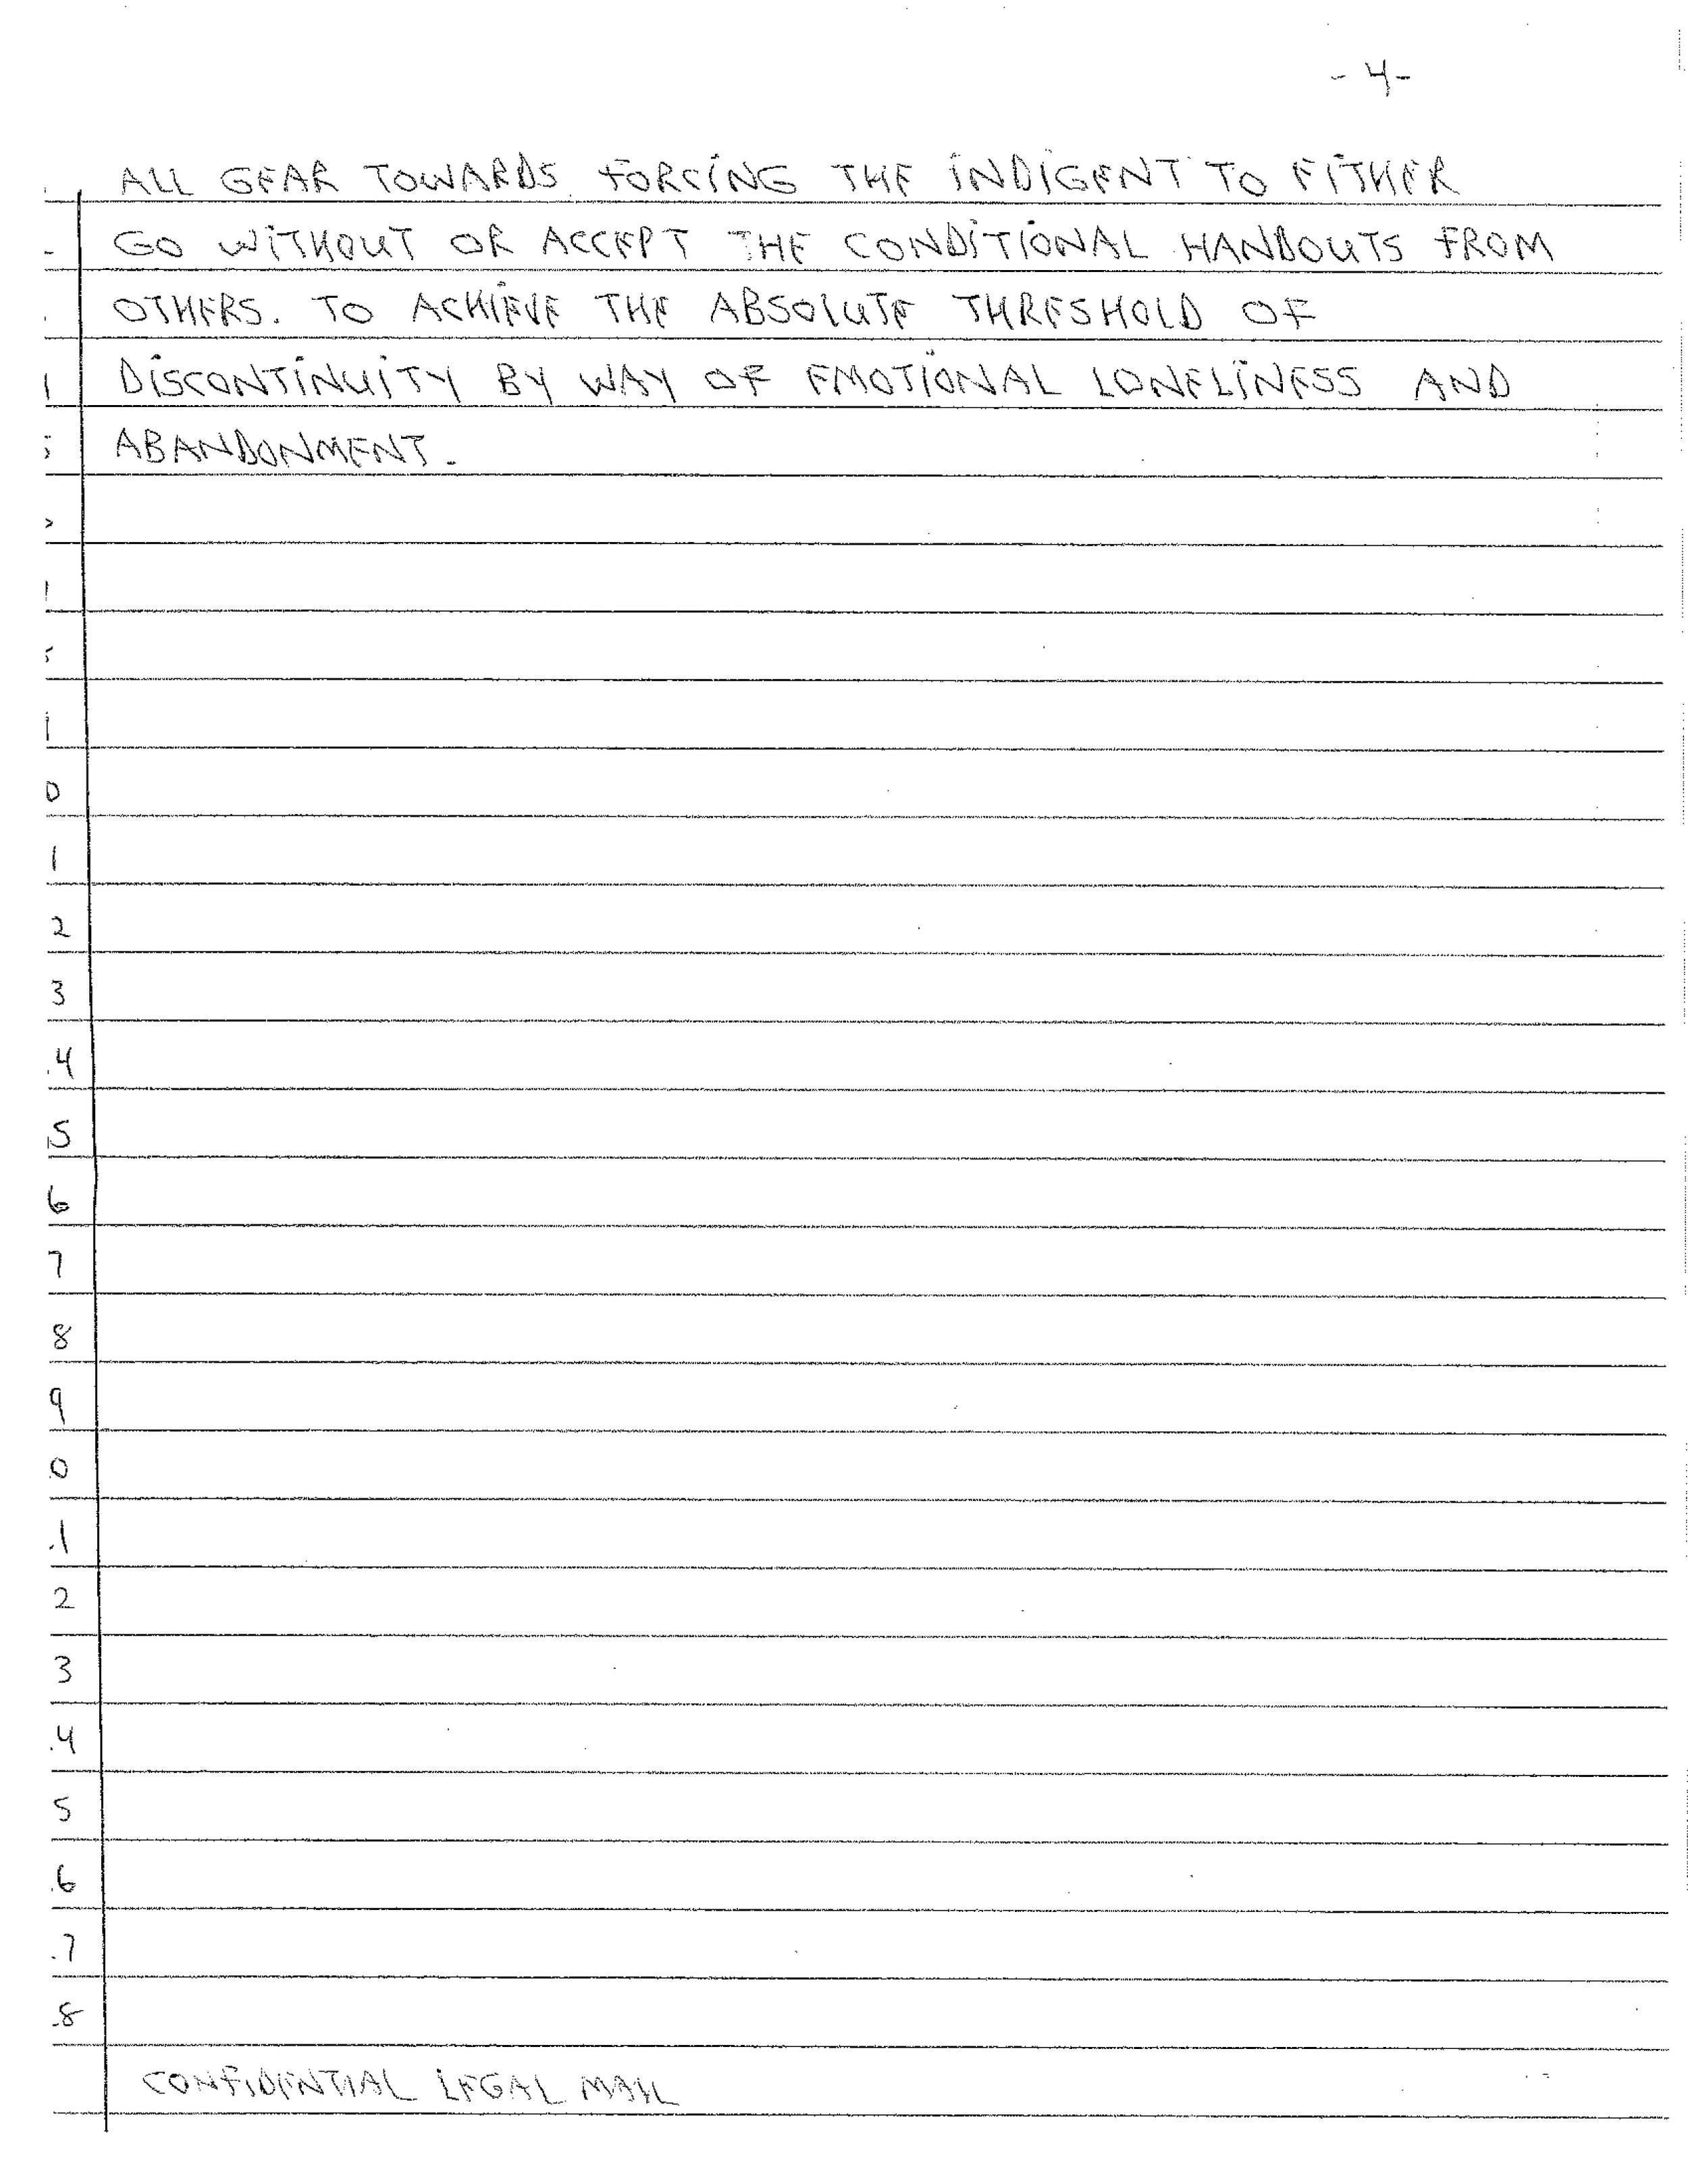 - 4 -
ALL GEAR TOWARDS FORCING THE INDIGENT TO EITHER
GO WITHOUT OR ACCEPT THE CONDITIONAL HANDOUTS FROM
OTHERS. TO ACHIEVE THE ABSOLUTE THRESHOLD OF
DISCONTINUITY BY WAY OF EMOTIONAL LONELINESS AND
ABANDONMENT.
0
1
2
3
4
5
6
7
8
9
0
1
2
3
4
5
6
7
8
CONFIDENTIAL LEGAL MAIL